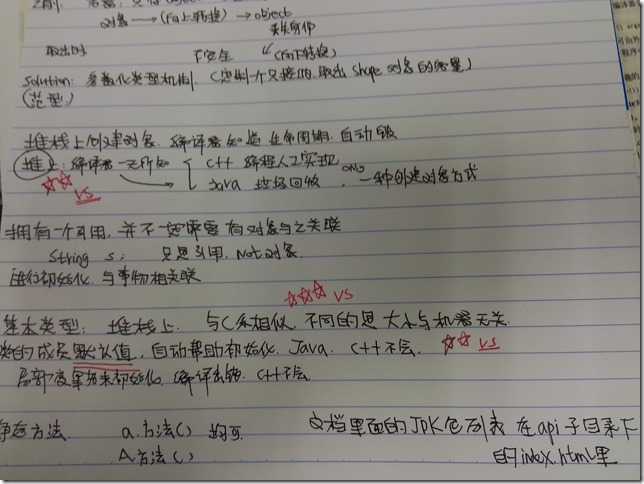 对象 → (向上转换) → object
丢失身份
取出时 不安全 (向下转换)
Solution: 参数化类型机制 (定制一个只接纳、取出 shape 对象的容器)
(范型)
堆栈上创建对象. 编译器知道 生命周期, 自动毁
堆上: 编译器一无所知 C++ 编程人工实现
Java 垃圾回收, only 一种创建对象方式
VS
拥有一个引用, 并不一定需要 有对象与之关联
String s; 只是引用, Not 对象.
进行初始化, 与事物相关联
VS
基本类型: 堆栈上. 与C系相似, 不同的是 大小与机器无关.
类的成员默认值, 自动帮助初始化. Java. C++不会. VS
局部变量 未初始化, 编译出错. C++不会
静态方法 a.方法() 均可 文档里面的JDK包列表 在api子目录下
A.方法() 的index.html里